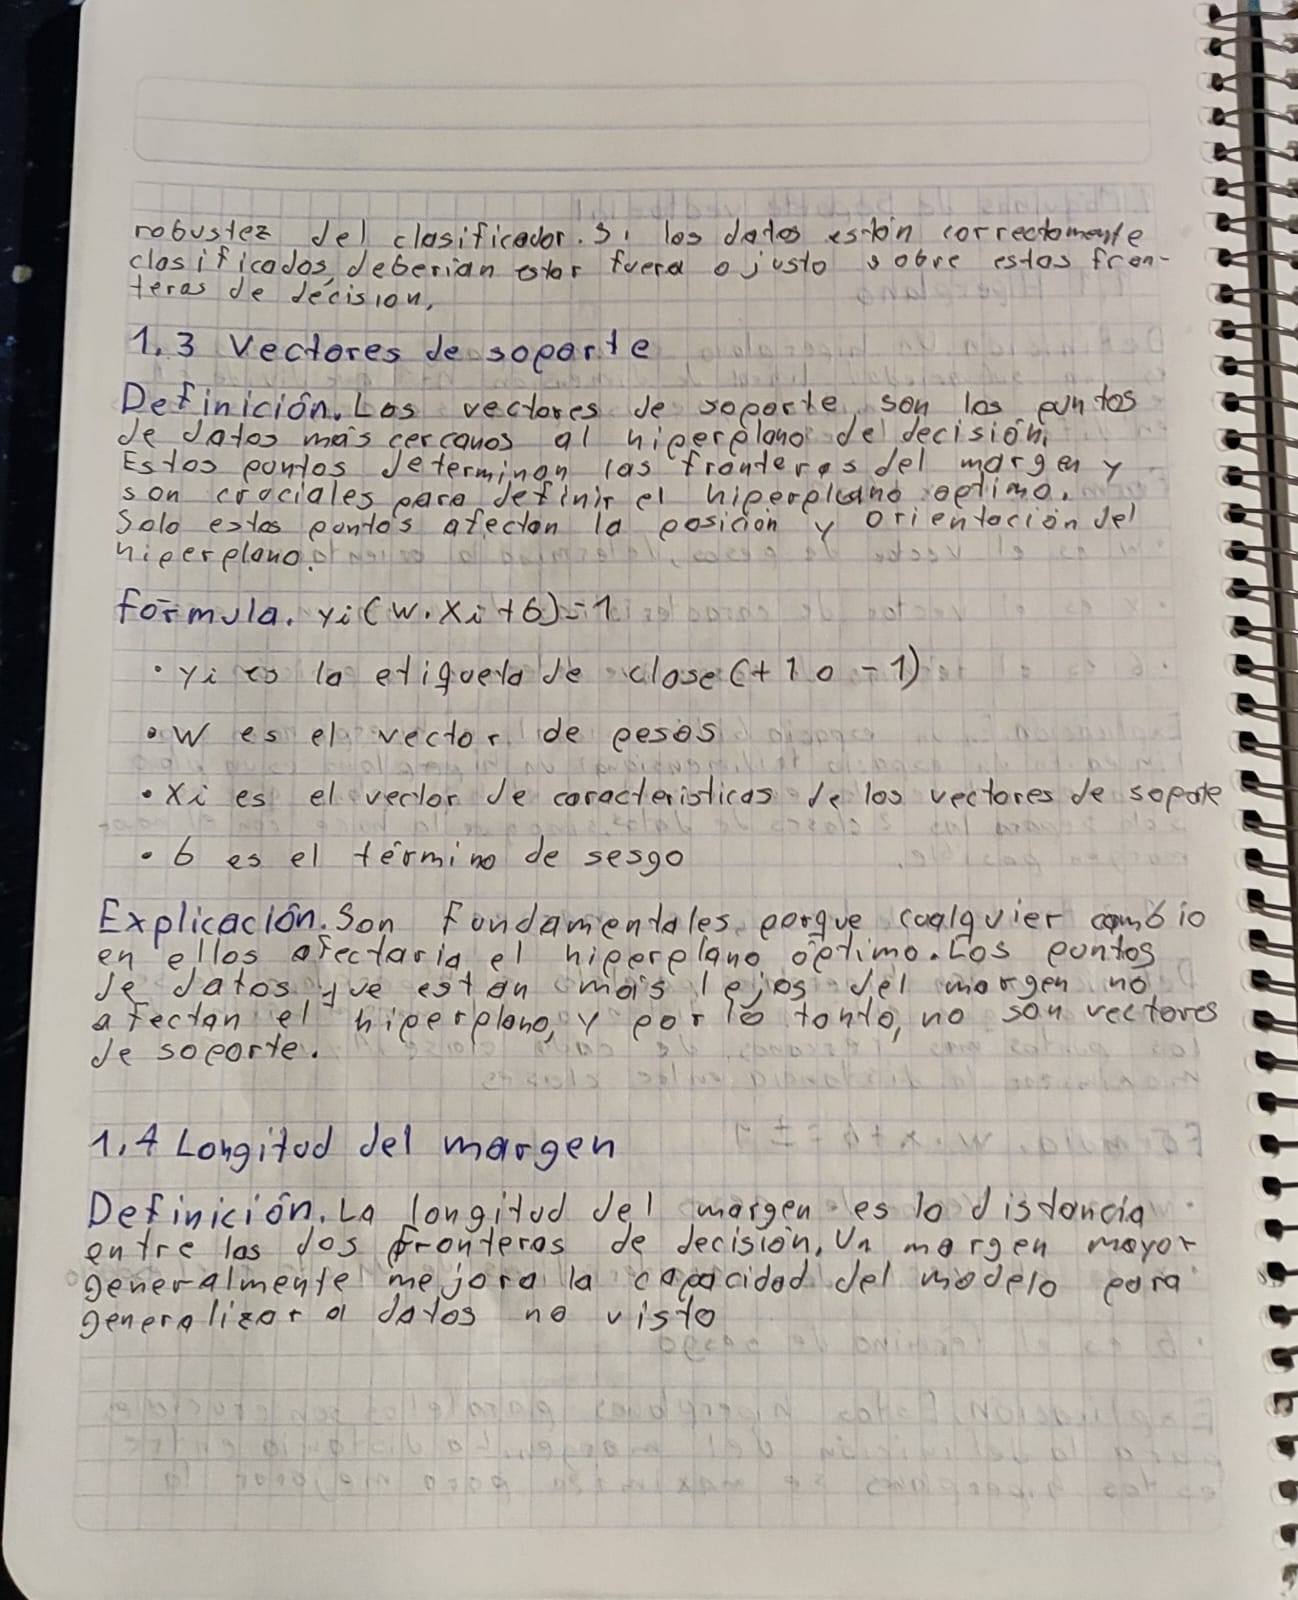 robustez del clasificador. Si los datos están correctamente
clasificados, deberian estar fuera o justo sobre estas fron-
teras de decision.
1.3 Vectores de soporte
Definición. Los vectores de soporte, son los puntos
de datos más cercanos al hiperplano de decisión.
Estos puntos determinan las fronteras del margen y
son cruciales para definir el hiperplano optimo.
Solo estos puntos afectan la posición y orientación del
hiperplano.
fórmula. yi(w.xi+b)=1
• yi es la etiqueta de clase (+1 o -1)
• w es el vector de pesos
• xi es el vector de caracteristicas de los vectores de soporte
• b es el término de sesgo
Explicación. Son fundamentales porque cualquier cambio
en ellos afectaria el hiperplano óptimo. Los puntos
de datos que estan más lejos del margen no
afectan el hiperplano, y por lo tanto, no son vectores
de soporte.
1.4 Longitud del margen
Definición. La longitud del margen es la distancia
entre las dos fronteras de decisión. Un margen mayor
generalmente mejora la capacidad del modelo para
generalizar a datos no visto